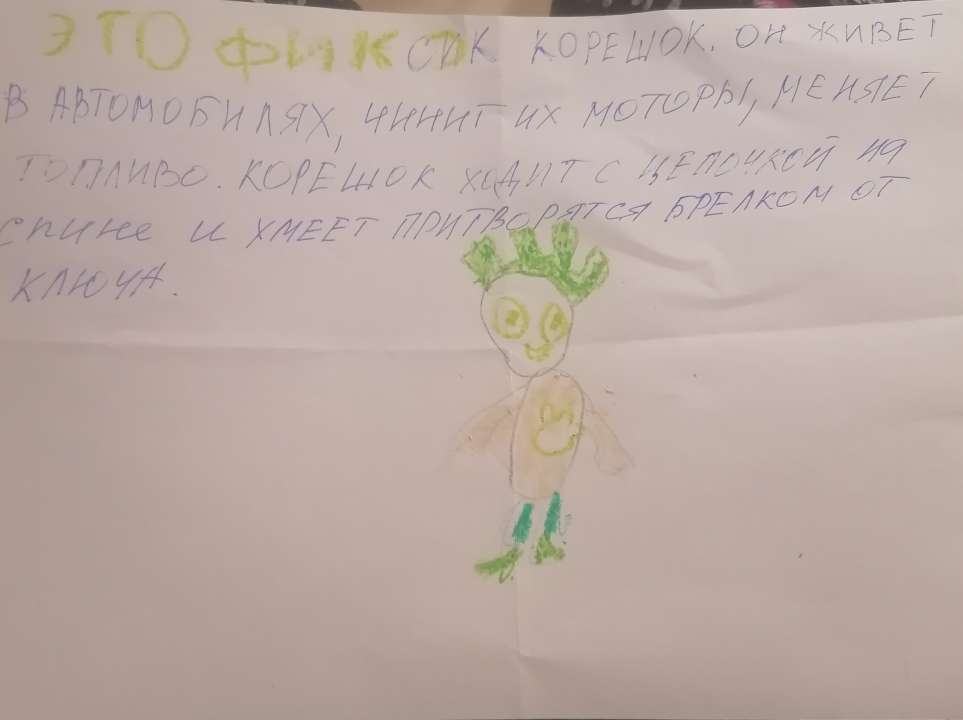 ЭТО ФИКСИК КОРЕШОК. ОН ЖИВЕТ
В АВТОМОБИЛЯХ, ЧИНИТ ИХ МОТОРЫ, МЕНЯЕТ
ТОПЛИВО. КОРЕШОК ХОДИТ С ЦЕПОЧКОЙ НА
СПИНЕ И ХМЕЕТ ПРИТВОРЯТСЯ БРЕЛКОМ ОТ
КЛЮЧА.